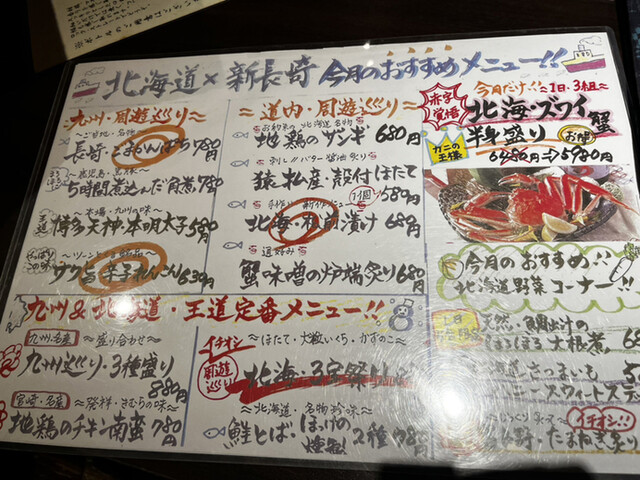 北海道×新長崎 今月のおすすめメニュー!!
九州・周遊巡り
〜ご当地・名物〜
長崎・とまのんぱち 780円
〜鹿児島・黒豚〜
5時間煮込んだ角煮 780
〜本場・九州の味〜
博多天神・本明太子 580円
ザク旨 辛子れんこん 630円
道内・周遊巡り
北海道名物
地鶏のザンギ 680円
刺し!!バター醤油炙り
猿払産・殻付ほたて 1個 580円
北海・松前漬け 680円
〜道好み〜
蟹味噌の炉端炙り 680円
今月だけ!!〜1日・3組〜
赤字覚悟
北海・ズワイ蟹
半身盛り お得
カニの王様
6480円⇒5780円
今月のおすすめ!!
北海道野菜コーナー!!
天然・鯛出汁の
ほろほろ大根煮
さつまいも
スウィートステ
イチオシ!!
たまねぎ炙り
九州&北海道・王道定番メニュー!!
九州・名産 〜盛り合わせ〜
九州巡り・3種盛り
880円
宮崎・名産 〜発祥・きむらの味〜
地鶏のチキン南蛮 780円
イチオシ 〜ほたて・大粒いくら・かずのこ〜
周遊巡り
北海・3宝祭り
〜北海道・名物珍味〜
鮭とば・ほっけの燻製 2種 780円